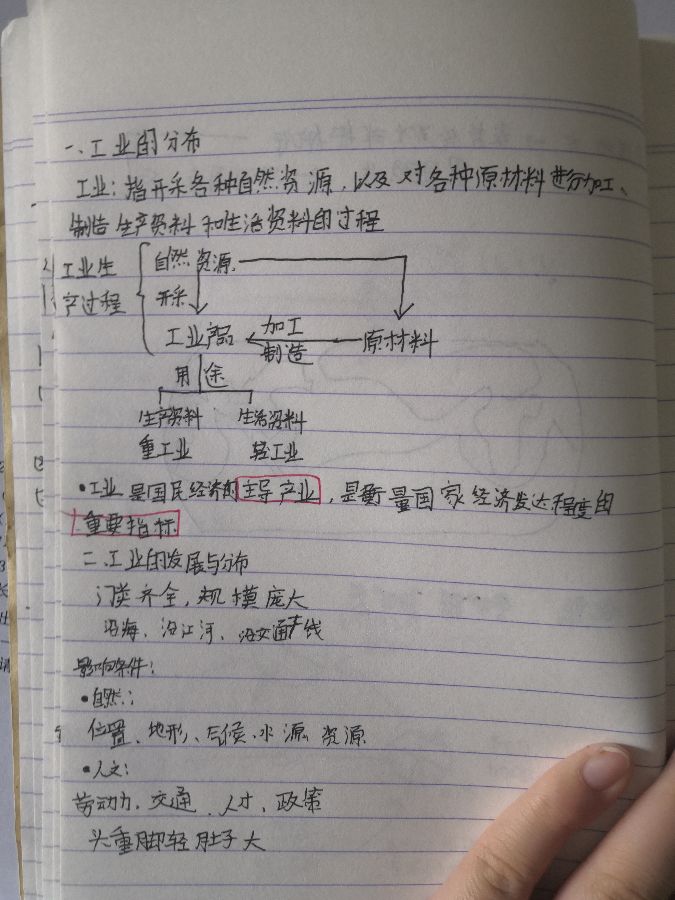 一、工业的分布
工业：指开采各种自然资源，以及对各种原材料进行加工、
制造生产资料和生活资料的过程
工业生 自然资源
产过程 开采
工业产品 加工 原材料
制造
用途
生产资料 生活资料
重工业 轻工业
•工业是国民经济的主导产业，是衡量国家经济发达程度的
重要指标
二、工业的发展与分布
门类齐全，规模庞大
沿海、沿江河、沿交通线
影响条件：
•自然：
位置、地形、气候、水源、资源
•人文：
劳动力、交通、人才、政策
头重脚轻肚子大